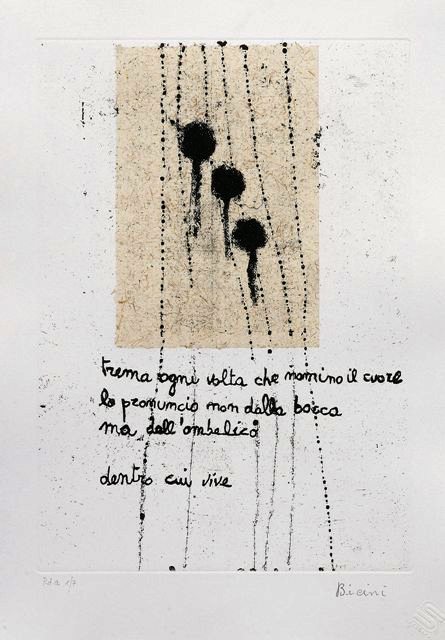 trema ogni volta che nomino il cuore
lo pronuncio non dalla bocca
ma dall'ombelico
dentro cui vive
P.d.a 1/7
Bicini